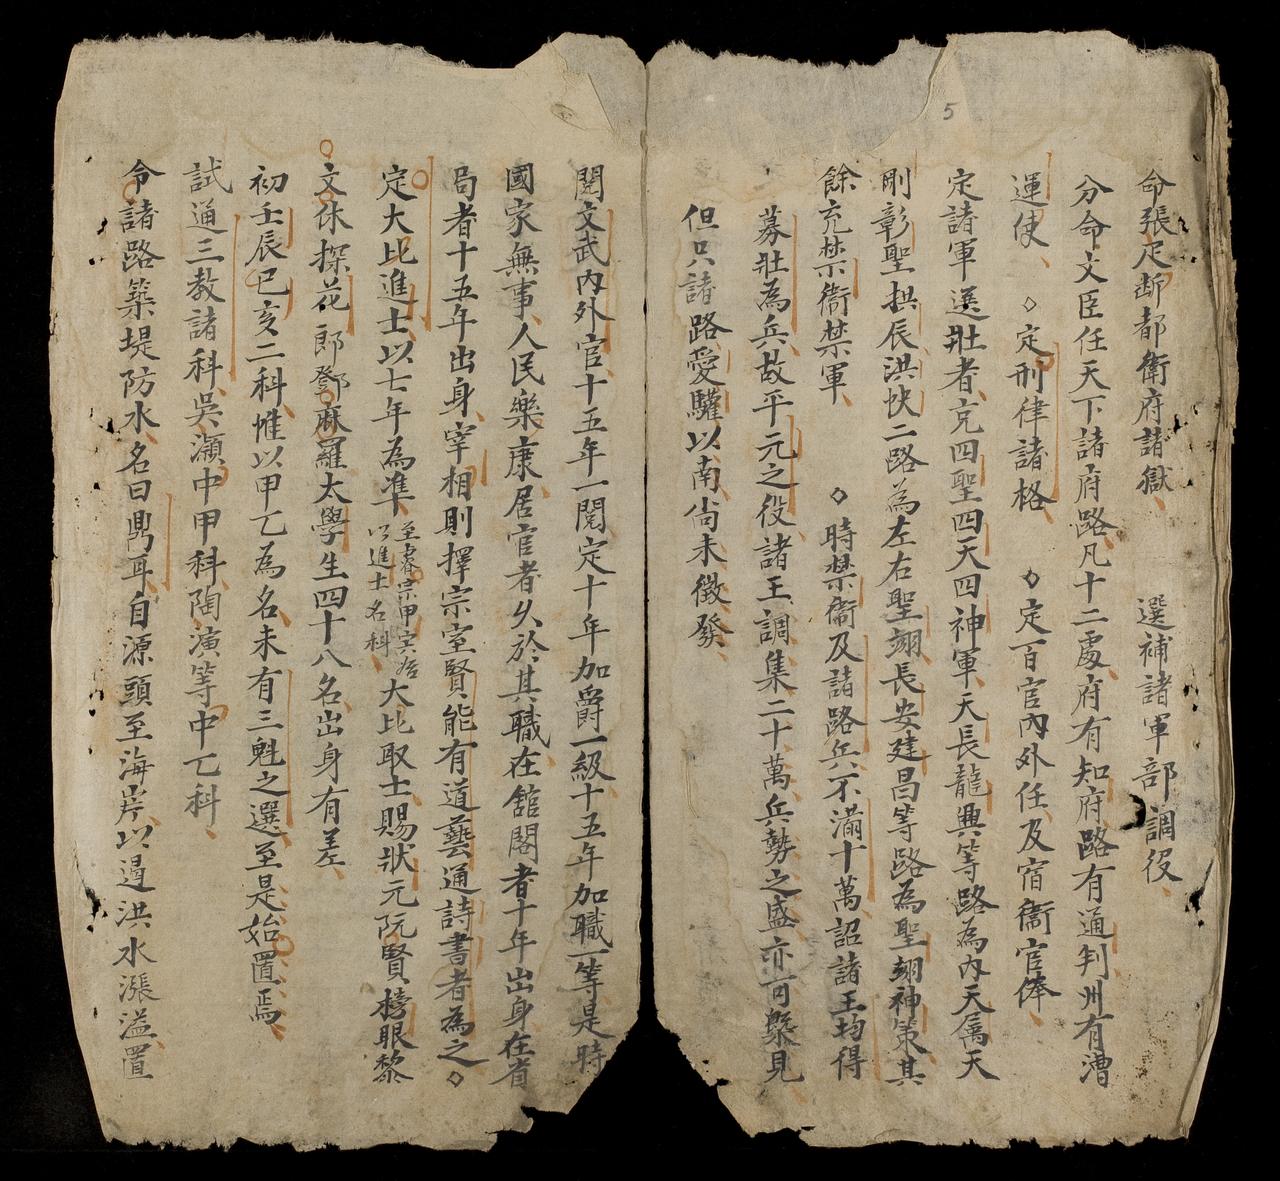 5
命張疋断都衛府諸獄　選補諸軍部調役
分命文臣任天下諸府路凡十二處府有知府路有通判州有漕
運使◇定刑律諸格◇定百官內外任及宿衞官俸
定諸軍選壯者充四聖四天四神軍天長龍興等路為內天属天
剛彰聖拱辰洪快二路為左右聖翊長安建昌等路為聖翊神策其
餘充禁衞禁軍◇時禁衞及諸路兵不滿十萬詔諸王均得
募壯為兵故平元之役諸王調集二十萬兵勢之盛亦可槩見
但只諸路愛驩以南尚未徵發
閱文武內外官十五年一閱定十年加爵一級十五年加職一等是時
國家無事人民樂康居官者久於其職在舘閣者十年出身在省
局者十五年出身宰相則擇宗室賢能有道藝通詩書者為之◇
定大比進士以七年為準至睿宗甲寅后以進士名科大比取士賜状元阮賢榜眼黎
文休探花郎鄧麻羅太學生四十八名出身有差
初壬辰巳亥二科惟以甲乙為名未有三魁之選至是始置焉
試通三教諸科吳瀕中甲科陶演等中乙科
令諸路築堤防水名曰鼎耳自源頭至海岸以遏洪水漲溢置